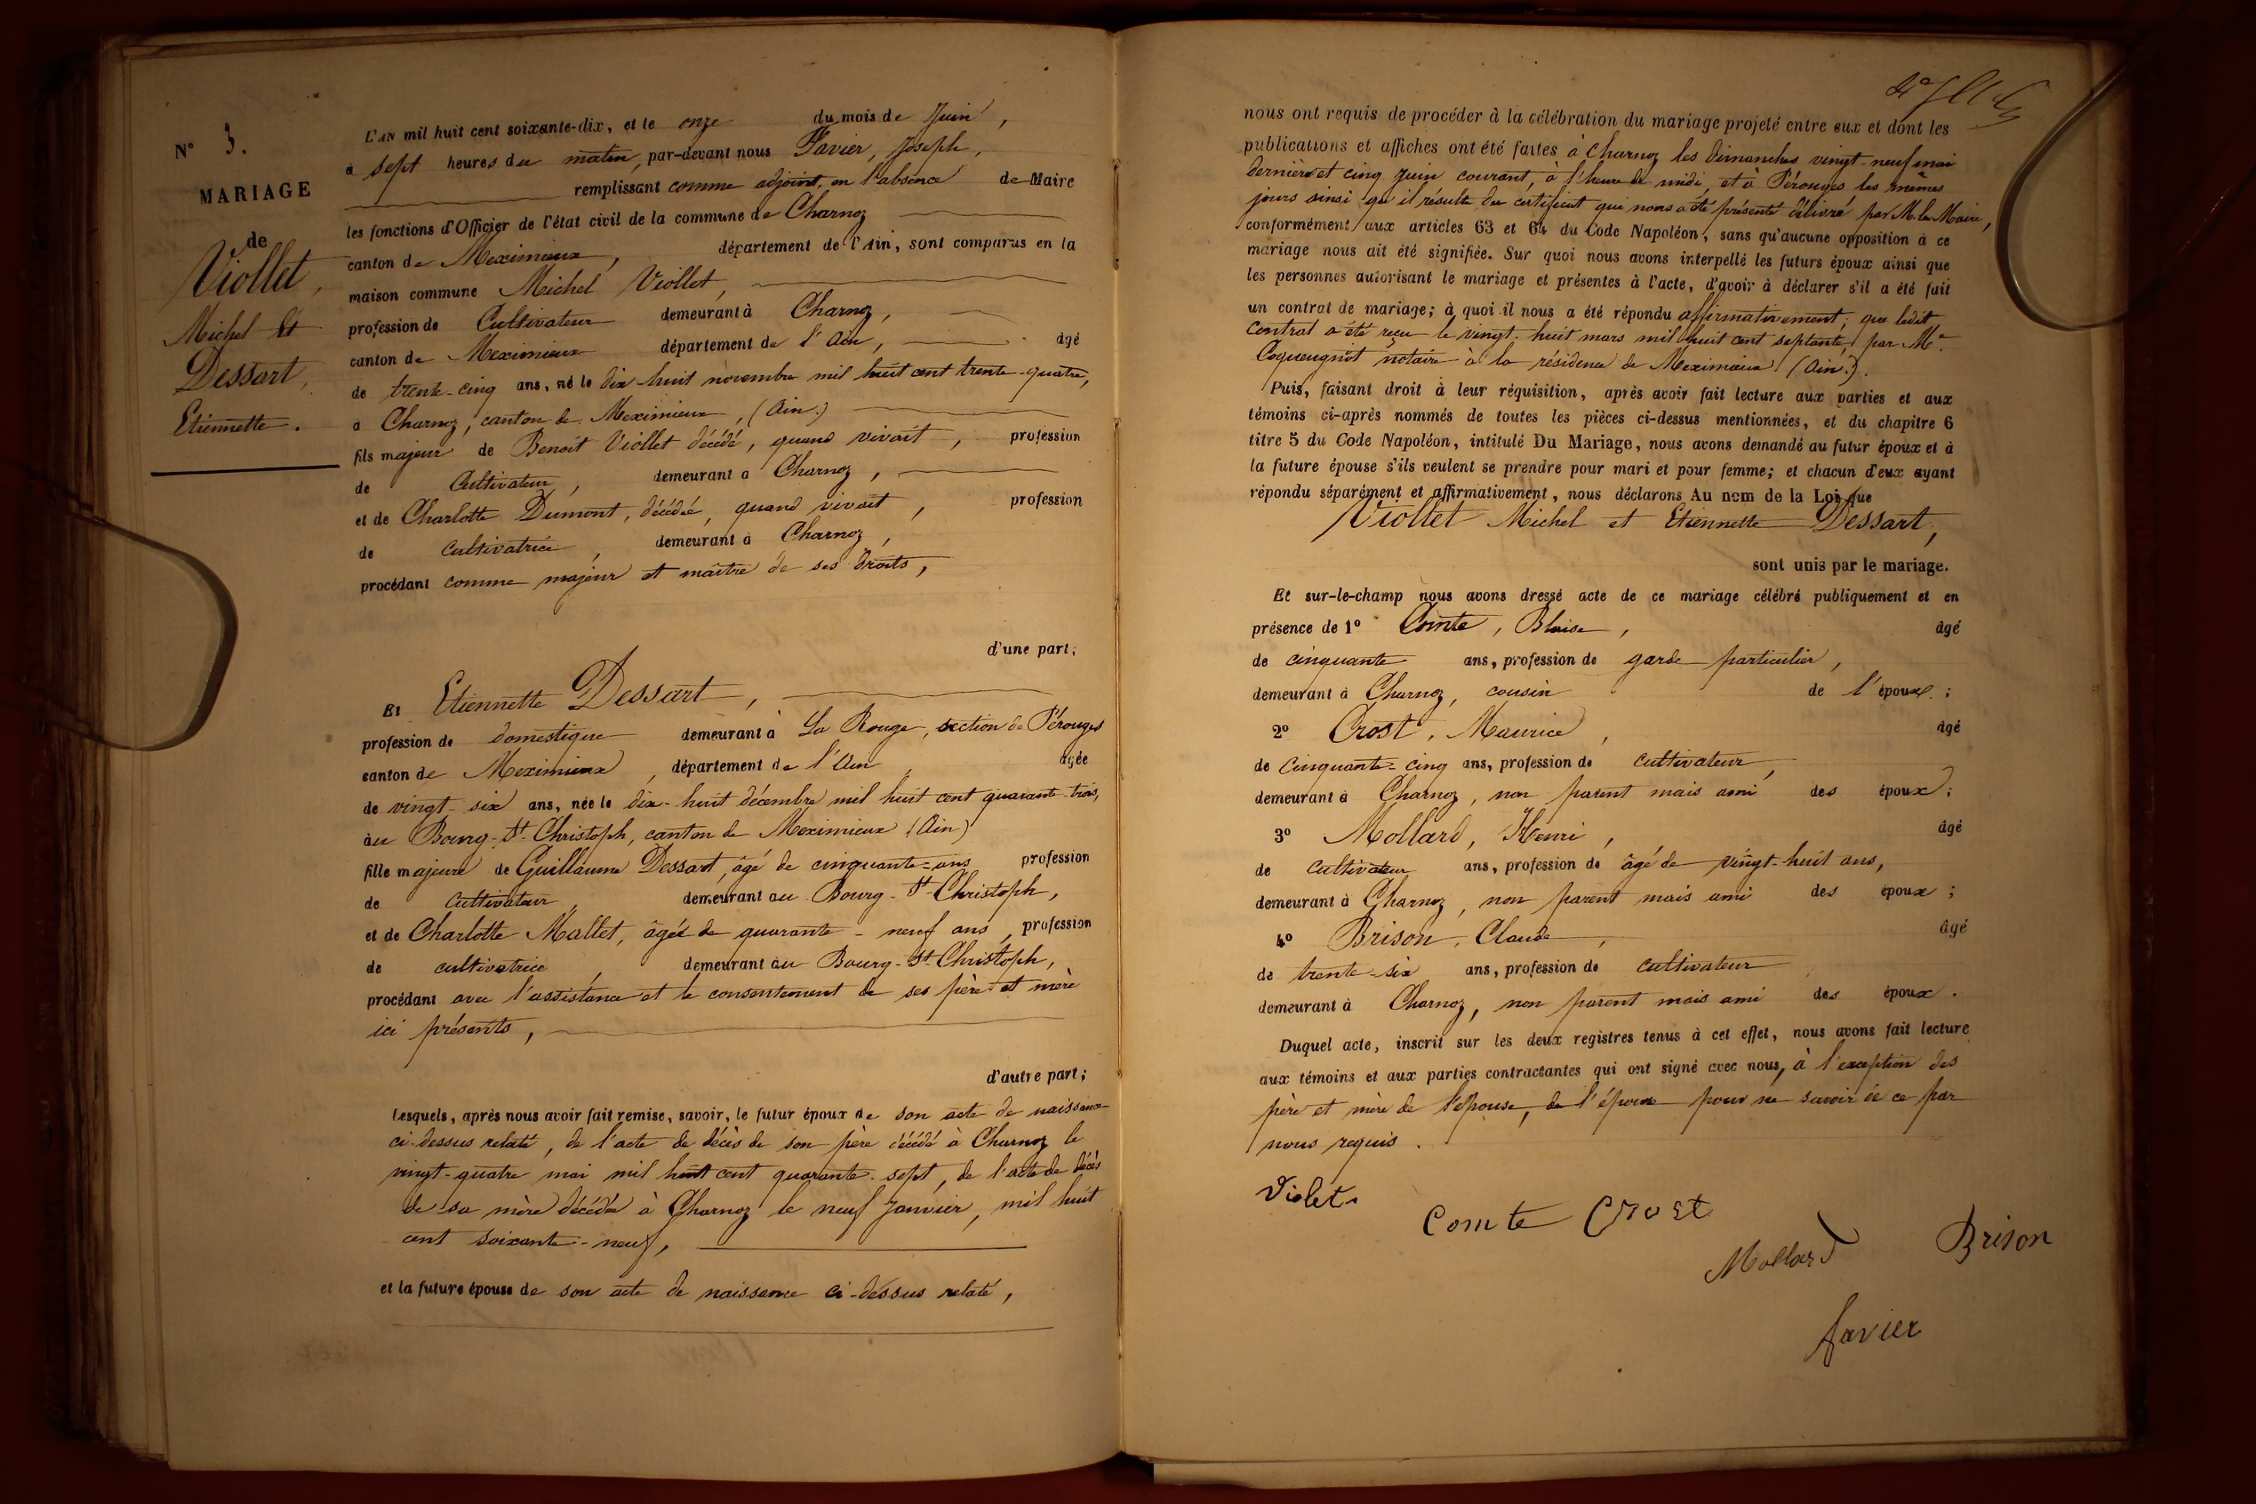 N° 3.
MARIAGE
de
Viollet,
Michel et
Dessart,
Etiennette.
L'AN mil huit cent soixante-dix, et le onze du mois de Juin,
à sept heures du matin, par-devant nous Favier, Joseph,
remplissant comme adjoint, en l'absence de Maire
les fonctions d'Officier de l'état civil de la commune de Charnoz
canton de Meximieux, département de l'Ain, sont comparus en la
maison commune Michel Viollet,
profession de Cultivateur demeurant à Charnoz,
canton de Meximieux département de l'Ain, âgé
de trente-cinq ans, né le dix-huit novembre mil huit cent trente-quatre,
à Charnoz, canton de Meximieux, (Ain.)
fils majeur de Benoit Viollet décédé, quand vivait, profession
de Cultivateur, demeurant à Charnoz,
et de Charlotte Dumont, décédée, quand vivait, profession
de cultivatrice, demeurant à Charnoz,
procédant comme majeur et maître de ses droits,
d'une part;
Et Etiennette Dessart,
profession de domestique demeurant à La Rouge, section de Pérouges
canton de Meximieux, département de l'Ain, âgée
de vingt-six ans, née le dix-huit décembre mil huit cent quarante-trois,
au Bourg-St-Christoph, canton de Meximieux (Ain)
fille majeure de Guillaume Dessart, âgé de cinquante-ans profession
de cultivateur, demeurant au Bourg-St-Christoph,
et de Charlotte Mallet, âgée de quarante-neuf ans, profession
de cultivatrice, demeurant au Bourg-St-Christoph,
procédant avec l'assistance et le consentement de ses père et mère
ici présents,
d'autre part;
Lesquels, après nous avoir fait remise, savoir, le futur époux de son acte de naissance
ci-dessus relaté, de l'acte de décès de son père décédé à Charnoz le
vingt-quatre mai mil huit cent quarante-sept, de l'acte de décès
de sa mère décédée à Charnoz le neuf Janvier, mil huit
cent soixante-neuf,
et la future épouse de son acte de naissance ci-dessus relaté,
nous ont requis de procéder à la célébration du mariage projeté entre eux et dont les
publications et affiches ont été faites à Charnoz les dimanches vingt-neuf mai
dernier et cinq Juin courant, à l'heure de midi, et à Pérouges les mêmes
jours ainsi qu'il résulte du certificat qui nous a été présenté délivré par M. le Maire,
conformément aux articles 63 et 64 du Code Napoléon, sans qu'aucune opposition à ce
mariage nous ait été signifiée. Sur quoi nous avons interpellé les futurs époux ainsi que
les personnes autorisant le mariage et présentes à l'acte, d'avoir à déclarer s'il a été fait
un contrat de mariage; à quoi il nous a été répondu affirmativement; que ledit
contrat a été reçu le vingt-huit mars mil huit cent septante, par Me.
Coqueugniot notaire à la résidence de Meximieux (Ain.).
Puis, faisant droit à leur réquisition, après avoir fait lecture aux parties et aux
témoins ci-après nommés de toutes les pièces ci-dessus mentionnées, et du chapitre 6
titre 5 du Code Napoléon, intitulé Du Mariage, nous avons demandé au futur époux et à
la future épouse s'ils veulent se prendre pour mari et pour femme; et chacun d'eux ayant
répondu séparément et affirmativement, nous déclarons Au nom de la Loi que
Viollet Michel et Etiennette Dessart,
sont unis par le mariage.
Et sur-le-champ nous avons dressé acte de ce mariage célébré publiquement et en
présence de 1° Comte, Blaise, âgé
de cinquante ans, profession de garde particulier,
demeurant à Charnoz, cousin de l'époux;
2° Crost, Maurice, âgé
de Cinquante-cinq ans, profession de cultivateur,
demeurant à Charnoz, non parent mais ami des époux;
3° Mollard, Henri, âgé
de cultivateur ans, profession de âgé de vingt-huit ans,
demeurant à Charnoz, non parent mais ami des époux;
4° Brison, Claude, âgé
de trente-six ans, profession de cultivateur
demeurant à Charnoz, non parent mais ami des époux.
Duquel acte, inscrit sur les deux registres tenus à cet effet, nous avons fait lecture
aux témoins et aux parties contractantes qui ont signé avec nous, à l'exception des
père et mère de l'épouse, de l'épouse pour ne savoir de ce par
nous requis.
Violet
Comte Crost
Mollard
Brison
favier